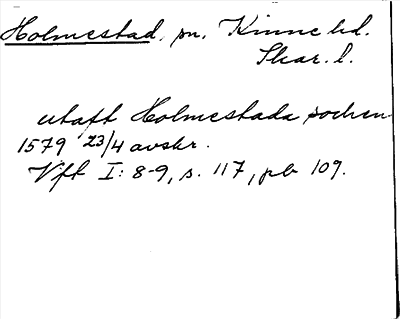 Holmestad, sn. Kinne hd.
Skar. l.
utaff Holmestada sochen
1579 23/4 avskr.
Vft I: 8-9, s. 117, pb 109.